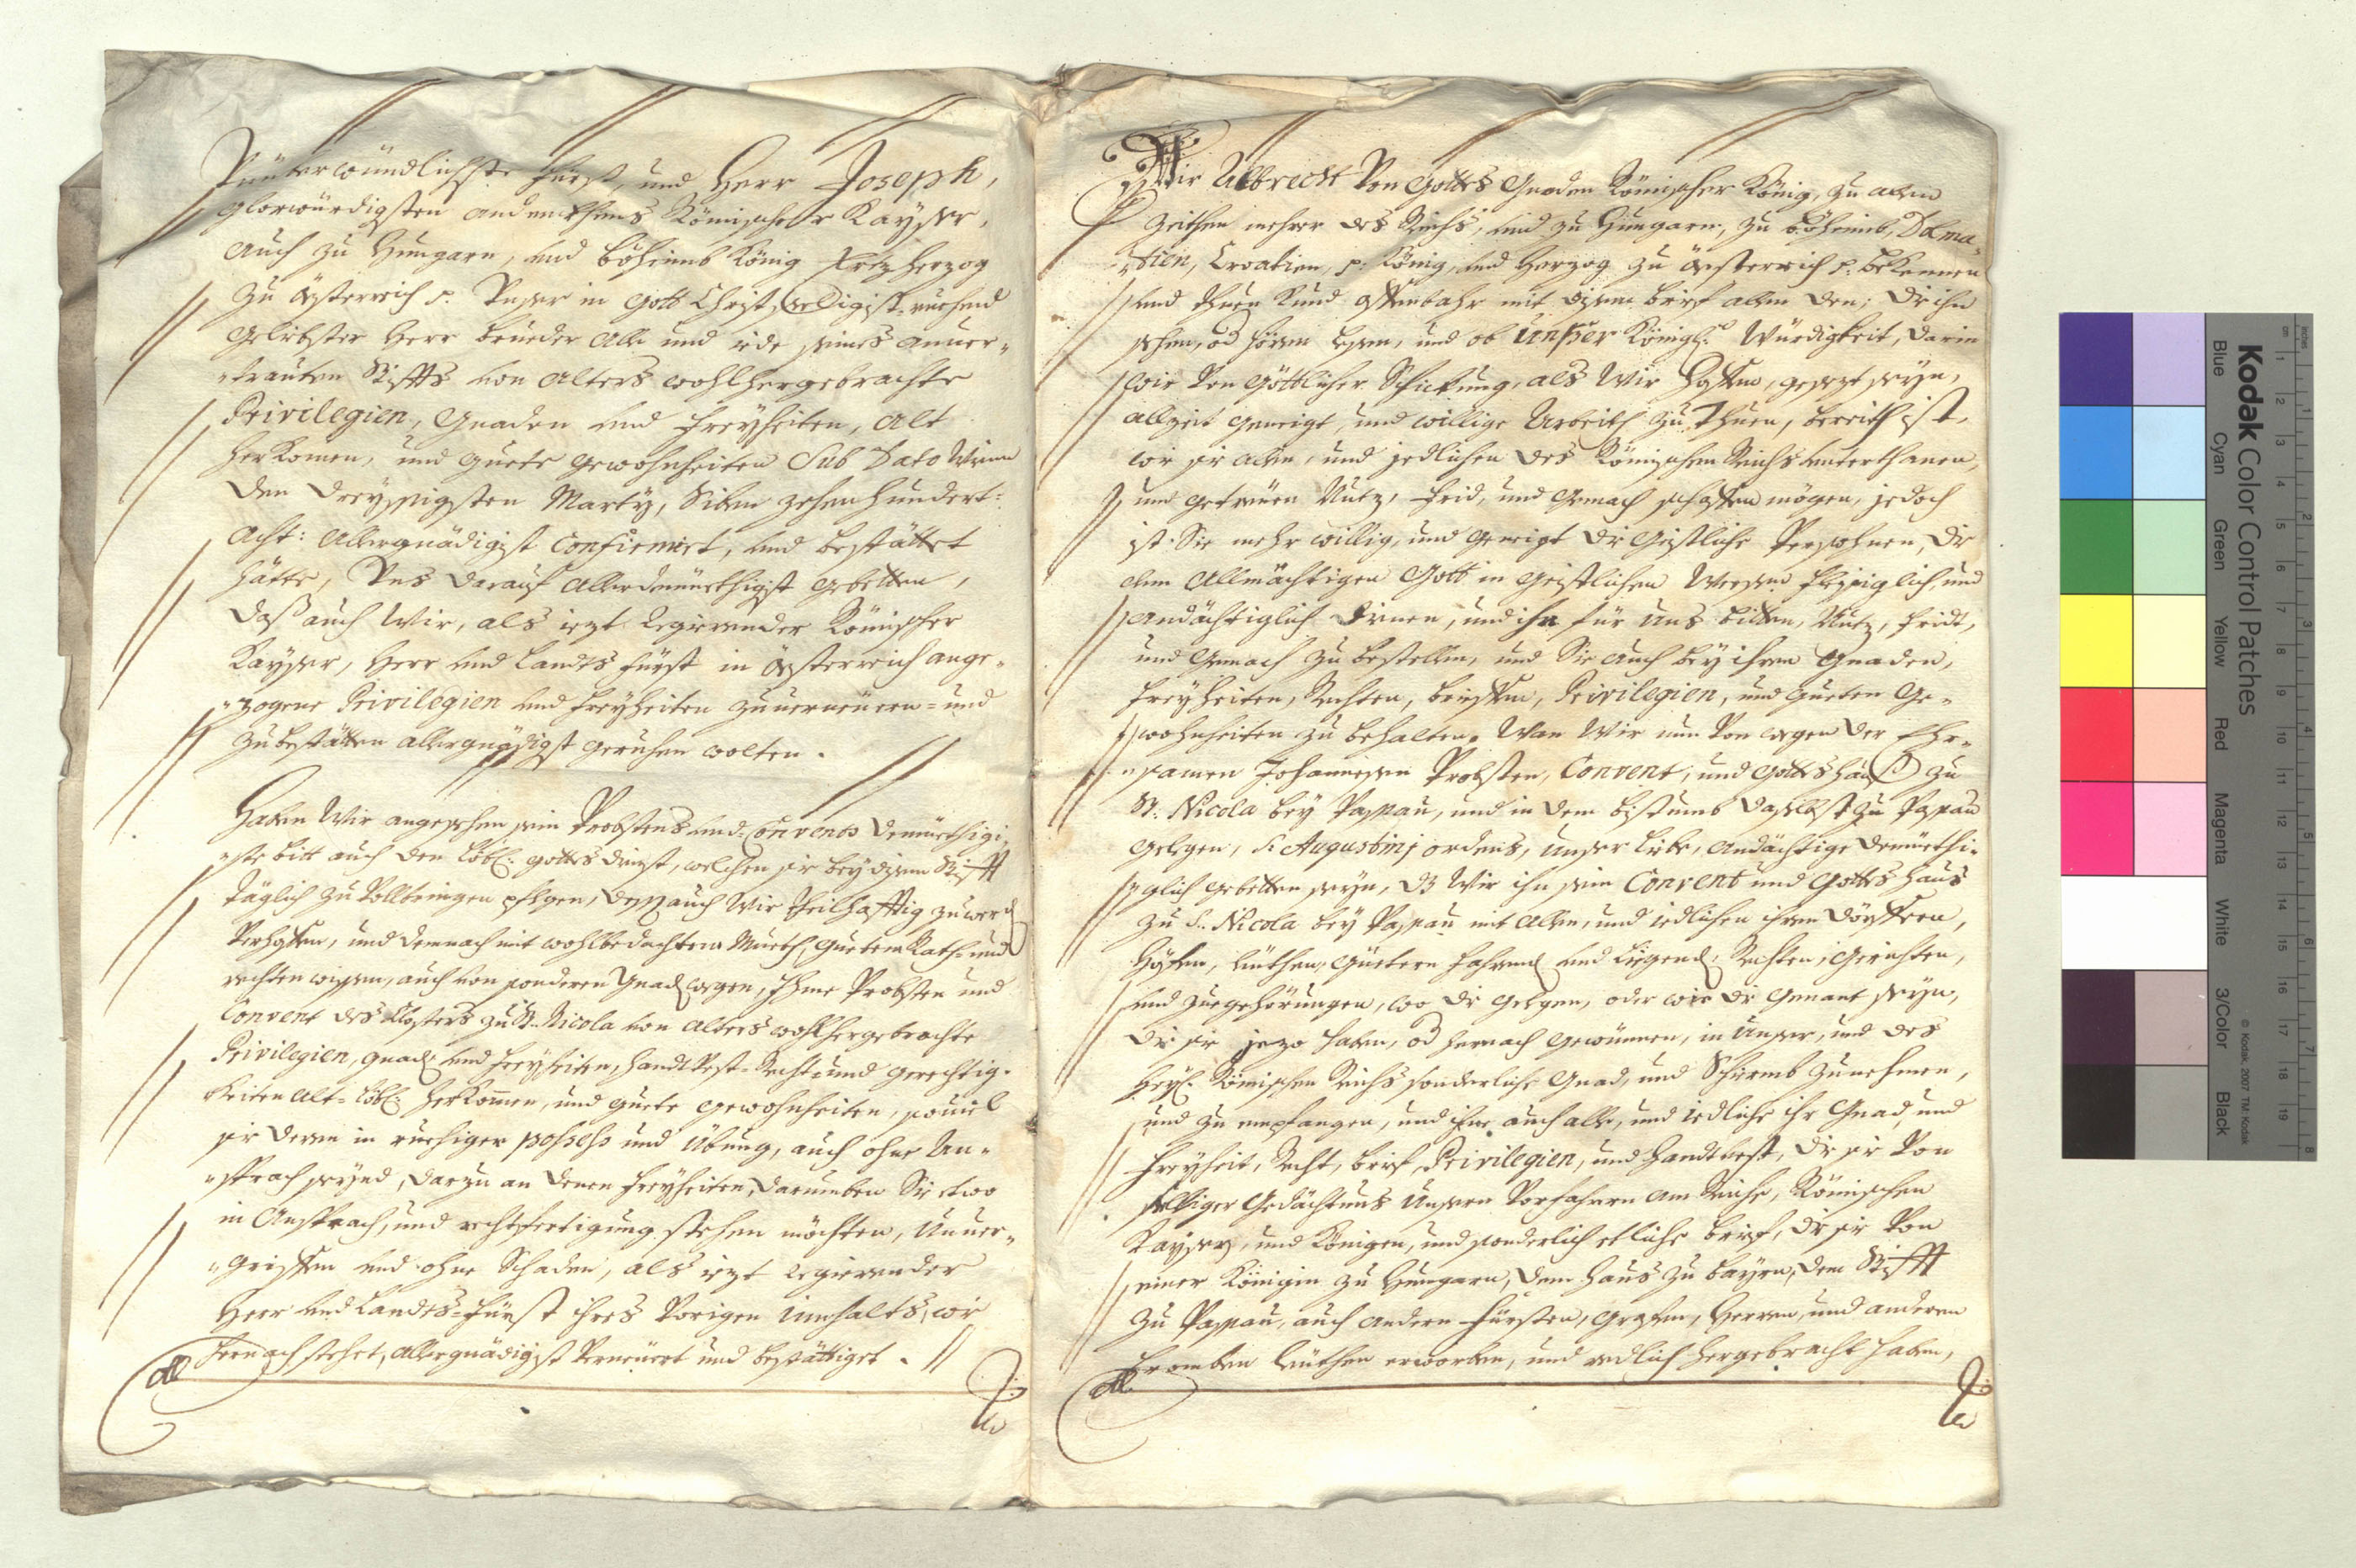 Unüberwündlichste Fürst, und Herr Joseph,
Glorwürdigsten andenckhens Römischer Kayser,
auch zu Hungarn, und Böheimb König Ertzherzog
zu Österreich p. Unser in Gott Christseeligist-ruehend
geliebster Herr Brueder alle und iede seines anver-
-trauten Stiffts von alters wohlhergebrachte
Privilegien, Gnaden und Freyheiten, alt
herkomen, und guete gewohnheiten sub dato Wienn
den dreyssigsten Marty, Siben zehenhundert:
Acht: Allergnädigist Confirmirt, und bestättet
hätte, Uns darauf allerdemüethigist gebetten,
daß auch Wir, als iezt Regierender Römischer
Kayser, Herr und Landts Fürst in Österreich ange-
-zogene Privilegien und Freyheiten zuverneüern- und
zubestätten allergnädigist geruhen wolten.
Haben Wir angesehen sein Probstens und Convents demüethigi-
-ste bitt auch den löbl: gottes dienst, welchen sie bey disem Stifft
täglich zu Vollbringen pflegen, dessen auch Wir theilhafftig zuwerd
Verhoffen, und demnach mit wohlbedachtem Mueth, guetem Rath- und
rechten wissen, auch von sonderen Gnad wegen, Ihme Probsten und
Convent des Closters zu St: Nicola von alters wohlhergebrachte
Privilegien, gnad und Freyheiten, Handt Vest- Recht und gerechtig-
kheiten alt- löbl: herkommen, und guete gewohnheiten, souiel
sie deren in ruehiger possess und Übung, auch ohne An-
-sprach seynd, darzu an denen Freyheiten, darumben Sie etwo
in Ansprach, und rechtsfertigung stehen möchten, Unver-
-griffen und ohne Schaden, als iezt Regierender
Herr und Landts-Fürst ihres Vorigen innhalts, wie
hernach stehet, allergnädigist Verneüert und bestättiget.
Wir Albrecht Von Gottes Gnaden Römischer König, zu allen
Zeithen mehrer des Reichs, und zu Hungarn, zu Böheimb, Dalma-
-tien, Croatien, p: König, und Herzog zu Österreich p. bekennen
und thuen kund offenbahr mit disem brief allen den; die ihn
sehen, od hören lesen, und ob Unßer Königl: Würdigkeit, darin
wir Von Göttlicher Schickung, als Wir Hoffen, gesezt seyn,
allzeit geneigt, und willige Arbeith zu Thuen, bereith ist,
wie sie allen, und jedlichen des Römischen Reichs unterthanen,
und getreüen Nutz, Frid, und Gemach schaffen mögen, jedoch
ist Sie mehr willig, und geneigt die Geistliche Persohnen, die
dem Allmächtigen Gott in Geistlichen Weesen fleissiglich, und
andächtiglich dienen, und ihn für uns bitten, Nutz, Fridt,
und Gemach zu bestellen, und Sie auch bey ihren Gnaden,
Freyheiten, Rechten, brieffen, Privilegien, und gueten Ge-
wohnheiten zu behalten. Wan Wir nun Von wegen der Ehr-
-samen Johannesen Probsten, Convent, und Gottshauß zu
St: Nicola bey Passau, und in dem bistumb daselbst zu Passau
gelegen, S: Augustinj ordens, Unser liebe, andächtige demüethi-
glich gebetten seyn, dz Wir ihn sein Convent und Gottshaus
zu S: Nicola bey Passau mit allen, und iedlichen ihren dörffern,
Höfen, Leüthen, Güetern fahrend und ligend; Rechten, Gerichten,
und zuegehörungen, wo die gelegen, oder wie die genant seyn,
die sie jezo haben, od hernach gewinnen, in Unser, und des
Heyl: Römischen Reichs sonderliche Gnad, und Schirmb zunehmen,
und zu empfangen, und ihne auch alle, und iedliche ihr Gnad, und
Freyheit, Recht, brief, Privilegien, und Handtvest, die sie Von
seeliger Gedächtnus Unsern Vorfahren am Reiche, Römischen
Kaysern, und Königen, und sonderlich etliche brief, die sie Von
einer Königin zu Hungarn, dem Haus zu Bayrn, dem Stifft
zu Passau, auch andern Fürsten, Grafen, Herren, und anderen
fromben Leüthen erworben, und redlich hergebracht haben,
Kodak Color Control Patches
Blue Cyan Green Yellow Red Magenta White 3/Color Black
© Kodak, 2007 TM: Kodak
inches 1 2 3 4 5 6 7 8
cm 1 2 3 4 5 6 7 8 9 10 11 12 13 14 15 16 17 18 19